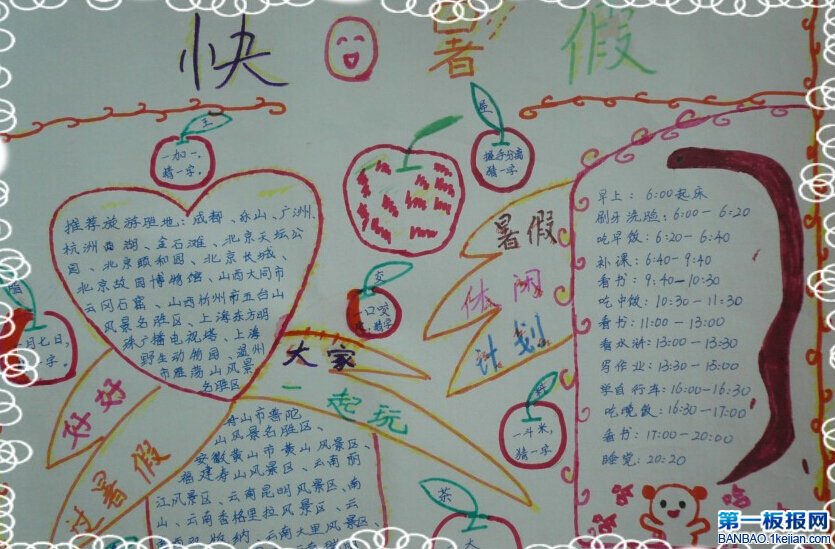 快 暑 假
王
一加一，
猜一字。
星
握手分离
猜一字。
推荐旅游胜地：成都、泰山、广洲、
杭洲西湖、金石滩、北京天坛公
园、北京颐和园、北京长城、
北京故园博物馆、山西大同市
云冈石窟、山西忻州市五台山
风景名胜区、上海东方明
珠广播电视塔、上海
野生动物园、温州
市雁荡山风景
名胜区
一月七日，
字。
一口变
猜字
暑假
休闲
计划
早上：6:00起床
刷牙洗脸：6:00-6:20
吃早饭：6:20-6:40
补课：6:40-9:40
看书：9:40-10:30
吃中饭：10:30-11:30
看书：11:00-13:00
看水浒：13:00-13:30
写作业：13:30-15:00
学自行车：16:00-16:30
吃晚饭：16:30-17:00
看书：17:00-20:00
睡觉：20:20
大家
一起玩
好好
过暑假
一斗米，
猜一字
舟山市普陀
山风景名胜区、
安徽黄山市黄山风景区、
福建泰山风景区、云南丽
江风景区、云南昆明风景区、南
山、云南香格里拉风景区、云
版纳、云南大里风景区、
茶
大
第一板报网
BANBAO.1kejian.com